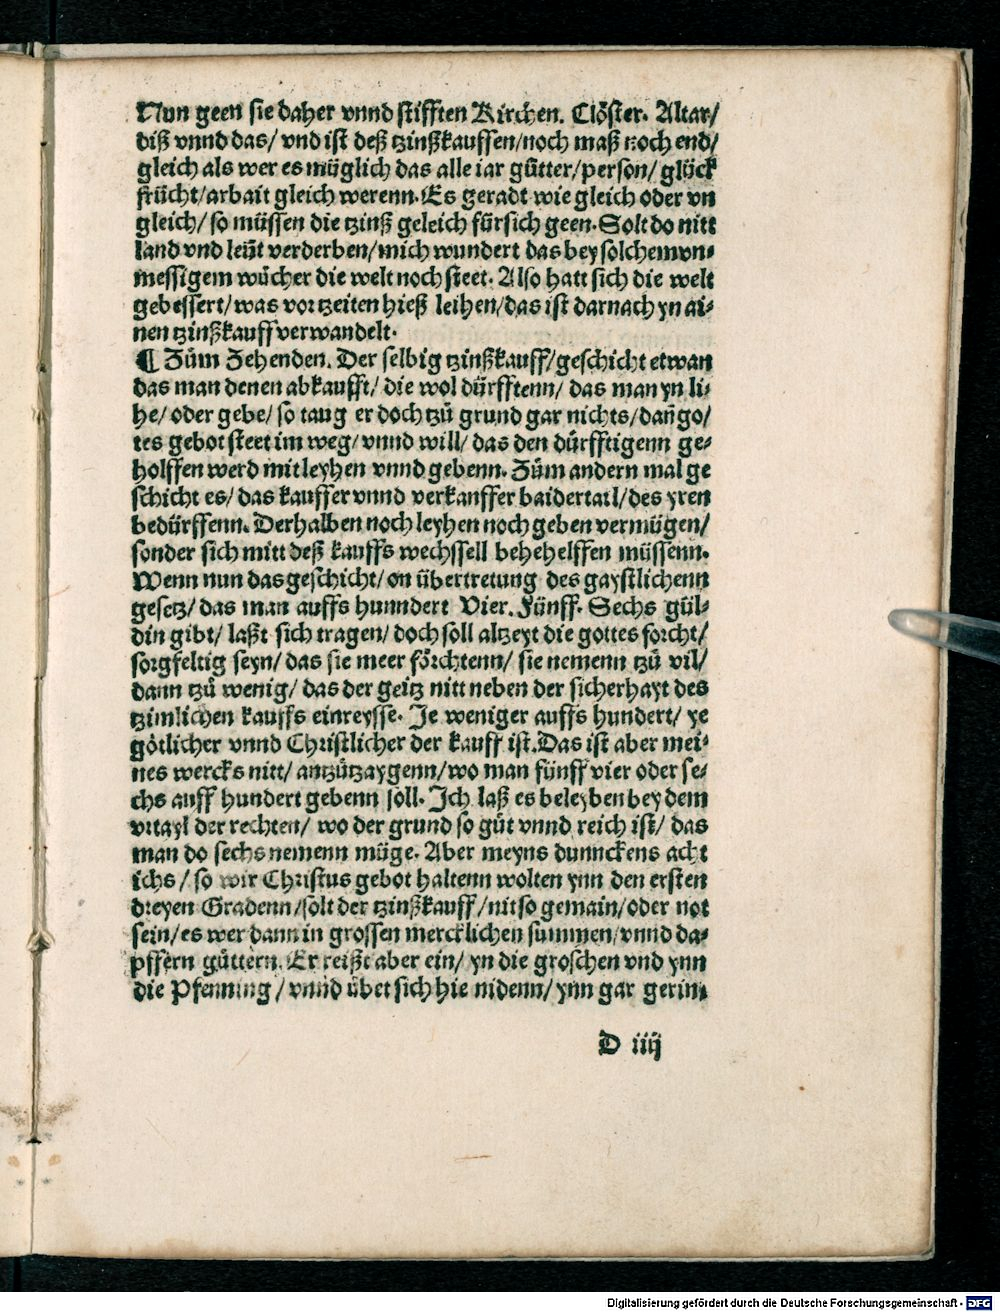 Nun geen sie daher vnnd stifften Kirchen. Clöster. Altar/
diß vnnd das/ vnd ist deß tzinßkauffen/noch maß noch end/
gleich als wer es müglich das alle iar gütter/person/ glück
frücht/arbait gleich werenn. Es geradt wie gleich oder vn
gleich/ so müssen die tzinß geleich fürsich geen. Solt do nitt
land vnd leüt verderben/mich wundert das bey solchem vn-
messigem wücher die welt noch steet. Also hatt sich die welt
gebessert/ was vor tzeiten hieß leihen/das ist darnach yn ai-
nen tzinßkauff verwandelt.
¶ Züm Zehenden. Der selbig tzinßkauff/geschicht etwan
das man denen abkaufft/ die wol dürfftenn/ das man yn li-
he/ oder gebe/ so taug er doch tzů grund gar nichts/ dan̄ go/
tes gebot steet im weg/ vnnd will/ das den dürfftigenn ge-
holffen werd mit leyhen vnnd gebenn. Züm andern mal ge
schicht es/ das kauffer vnnd verkauffer baidertail/des yren
bedürffenn. Derhalben noch leyhen noch geben vermügen/
sonder sich mitt deß kauffs wechssell behehelffen müssenn.
Wenn nun das geschicht/ on übertretung des gaystlichenn
gesetz/ das man auffs hunndert Vier. Fünff. Sechs gül-
din gibt/ laßt sich tragen/ doch soll altzeyt die gottes forcht/
sorgfeltig seyn/ das sie meer förchtenn/ sie nemenn tzů vil/
dann tzů wenig/ das der geitz nitt neben der sicherhayt des
tzimlichen kauffs einreysse. Je weniger auffs hundert/ ye
götlicher vnnd Christlicher der kauff ist. Das ist aber mei-
nes wercks nitt/ antzützaygenn/wo man fünff vier oder se-
chs auff hundert gebenn soll. Ich laß es beleyben bey dem
vrtayl der rechten/ wo der grund so gůt vnnd reich ist/ das
man do sechs nemenn müge. Aber meyns dunnckens acht
ichs/ so wir Christus gebot haltenn wolten ynn den ersten
dreyen Gradenn/solt der tzinßkauff/nit so gemain/oder not
sein/es wer dann in grossen mercklichen summen/vnnd da-
pffern güttern. Er reißt aber ein/ yn die groschen vnd ynn
die Pfenning/ vnnd übet sich hie nidenn/ ynn gar gerin-
D iiij
Digitalisierung gefördert durch die Deutsche Forschungsgemeinschaft - DFG